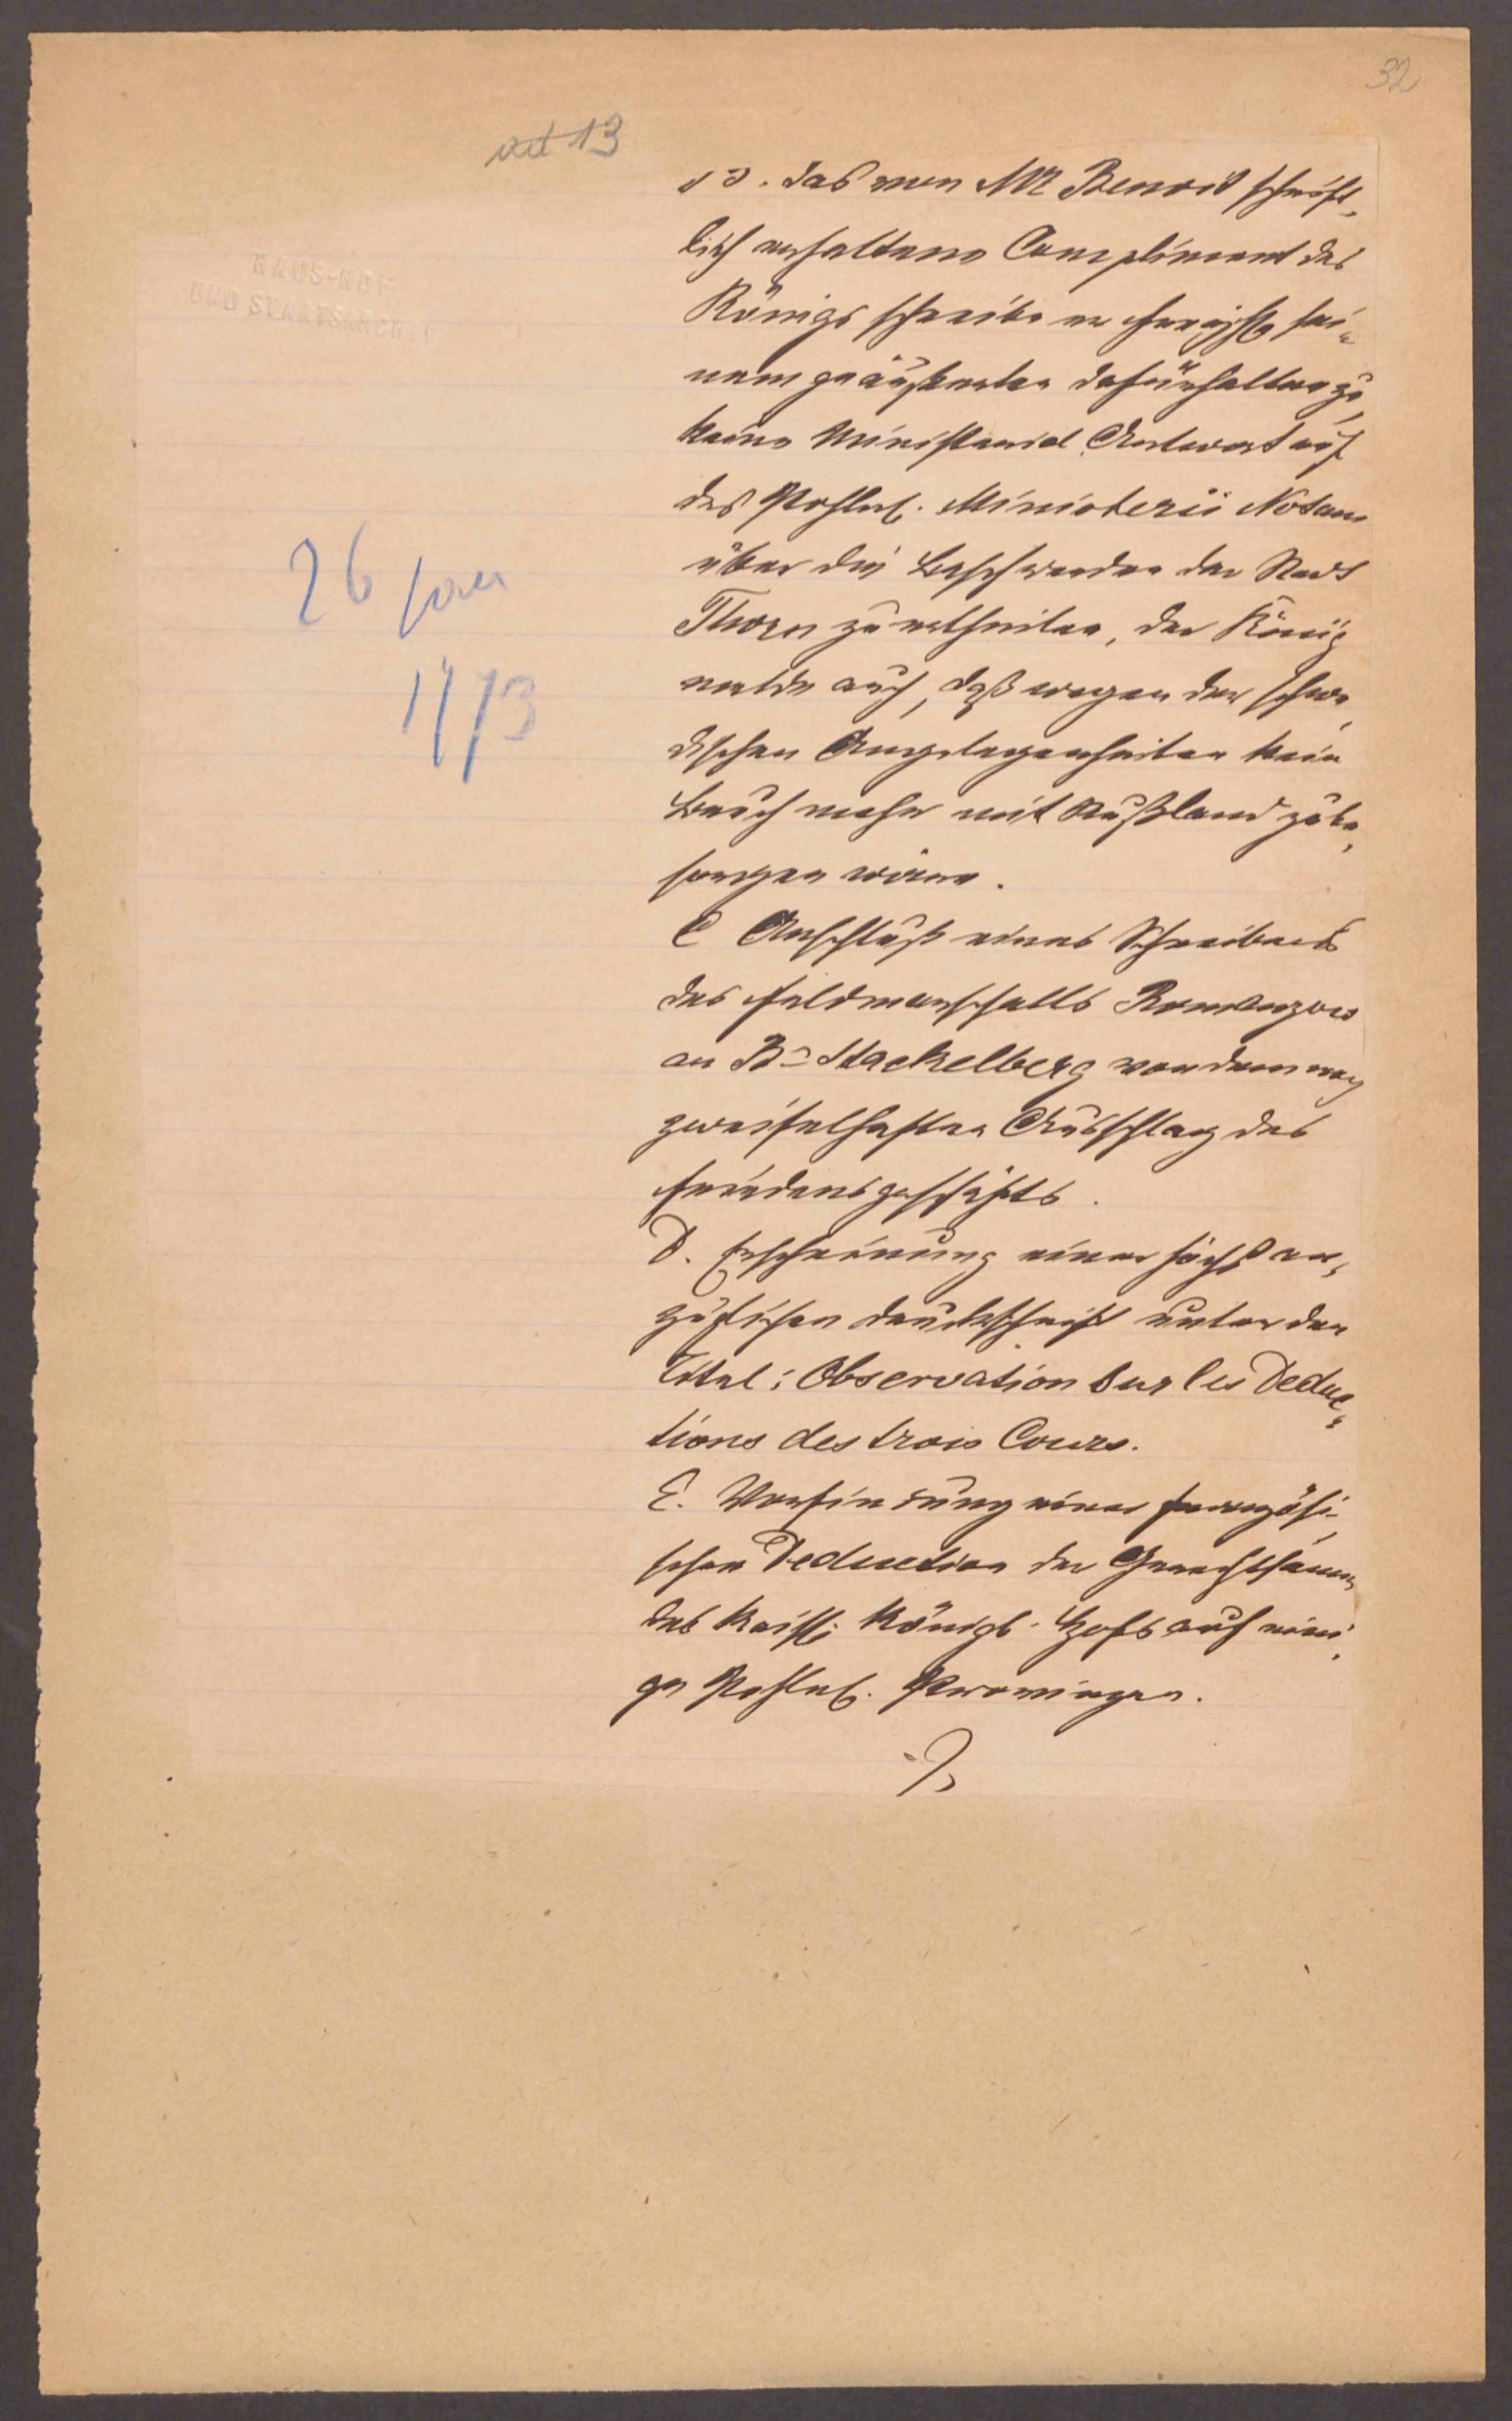 32
ad 13
HAUS-HOF
UND STAATSARCHIV
13. das von Mr Benoit schrift,
lich erhaltene Compliment des
Königs schreibe er sei=
nem geäußerten dafürhalten zu,
keine Ministerial Antwort auf
des Pohln. Ministerii Notam
über die Beschwerden der Stadt
Thorn zu ertheilen, der König
melde auch, daß wegen der schwe,
dischen Angelegenheiten kein
Bruch mehr mit Rußland zu be,
sorgen wäre.
26 Jan
1773
C Anschluß eines Schreibens
des Feldmarschalls Romanzow
an Bn Stackelberg von dem
zweifelhaften Ausschlag des
Friedensgeschäfts.
D. Erscheinung einer höchst an,
züglichen Druckschrift unter dem
Titel: Observation sur les Deduc=
tions des trois Cours.
E. einer französi=
schen Deduction der Gerechtsame
des Kaisl. Königl. Hofs auf eini,
ge Pohln. Provinzen.